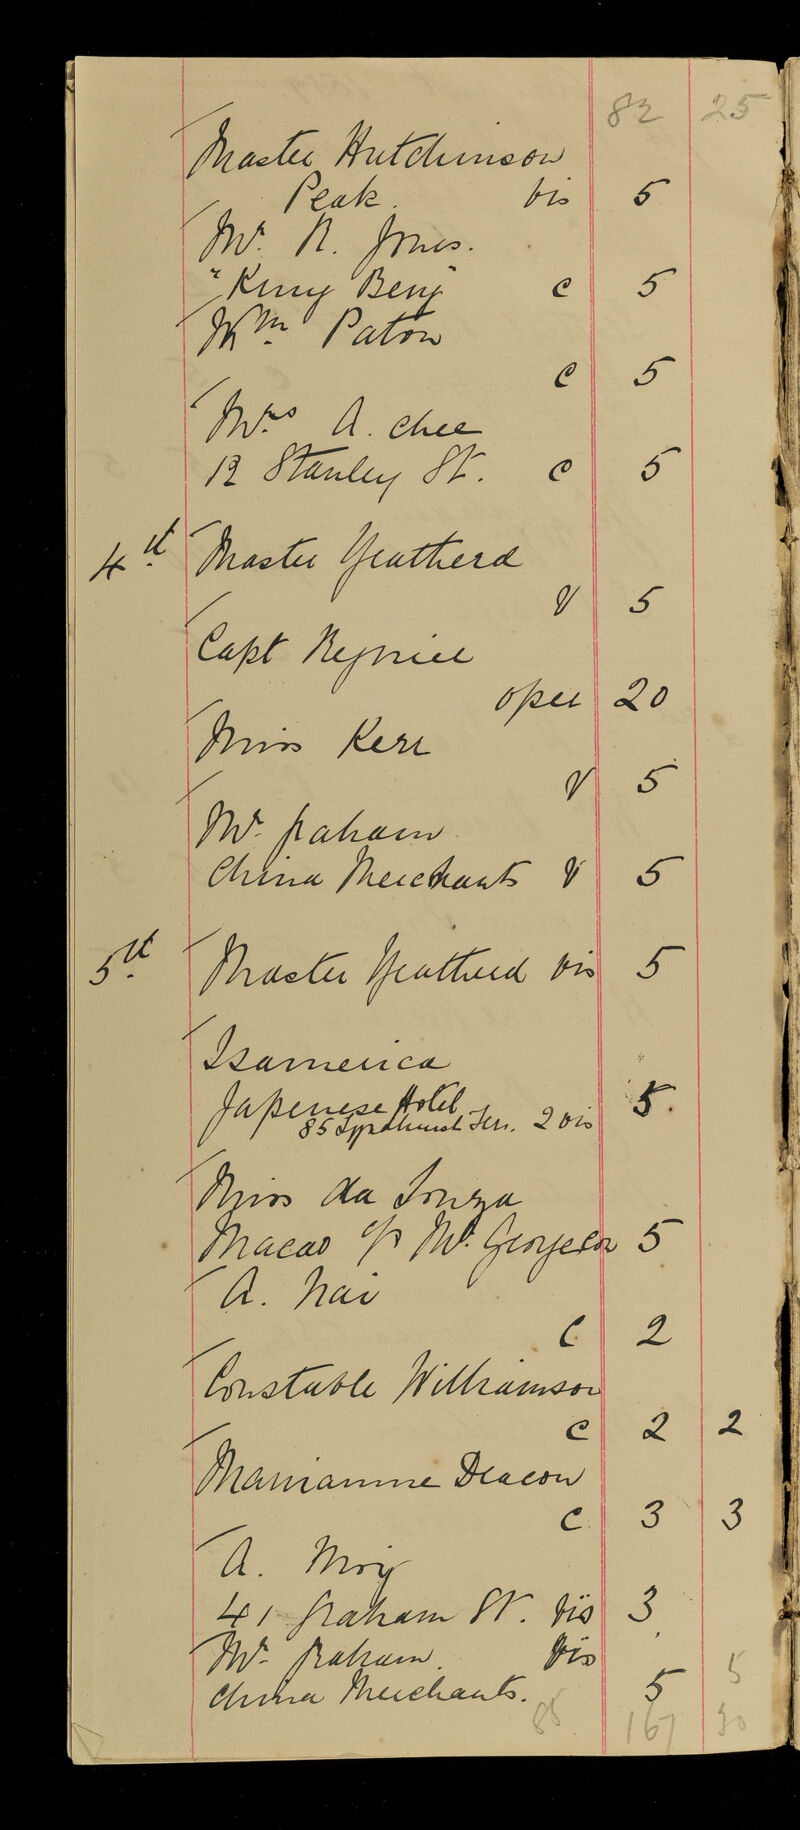 82 25
Master Hutchinson
Peak. vis 5
Mr. R. Jones.
"King Beng" c 5
Wm. Paton
c 5
Mrs. A. Chee
12 Stanley St. c 5
4th Master Yeatherd
V 5
Capt
oper 20
Miss Kerr
V 5
Mr. Graham
China Merchants V 5
5th Master Yeatherd vis 5
Isamerica
Japenese Hotel 5.
85 Lyndhurst Terr. 2 vis
Miss da Souza
Macao c/o Mr. Georgeson 5
A. Nai
C. 2
Constable Williamson
c 2 2
Marianne Deacon
c 3 3
A. Moy
41 Graham St. vis 3.
Mr. Graham. vis
China Merchants. 5 5
86 167 30